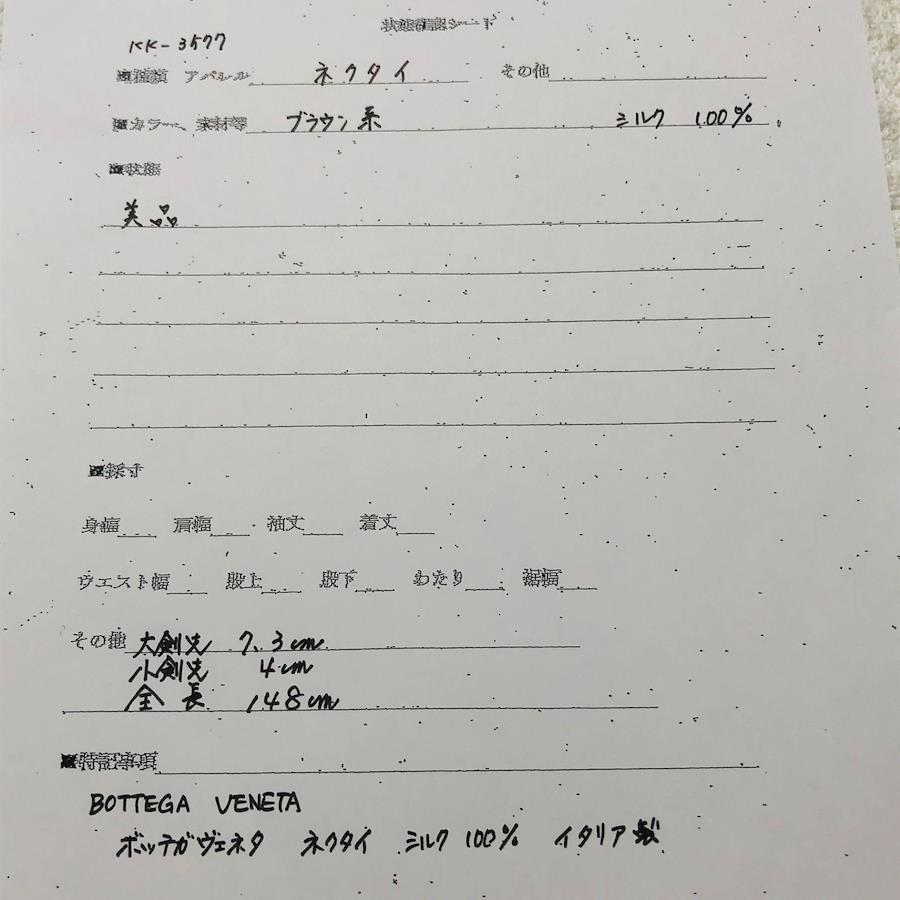 状態確認シート
KK-3577
■種類 アパレル ネクタイ その他
■カラー、素材等 ブラウン系 シルク 100%
■状態
美品
■採寸
身幅 肩幅 袖丈 着丈
ウエスト幅 股上 股下 わたり 裾幅
その他 大剣先 7.3cm
小剣先 4cm
全長 148cm
■特記事項
BOTTEGA VENETA
ボッテガヴェネタ ネクタイ シルク100% イタリア製